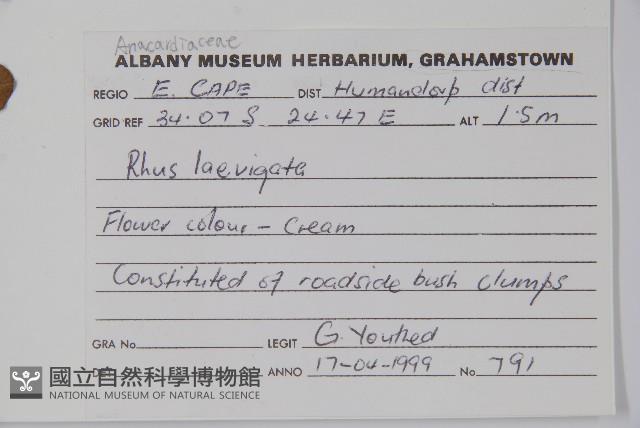 Anacardiaceae
ALBANY MUSEUM HERBARIUM, GRAHAMSTOWN
REGIO E. CAPE DIST Humandorp dist
GRID REF 34.07 S 24.47 E ALT 1.5m
Rhus laevigata
Flower colour - Cream
Constituted of roadside bush clumps
GRA No. LEGIT G. Youthed
ANNO 17-04-1999 No 791
國立自然科學博物館
NATIONAL MUSEUM OF NATURAL SCIENCE